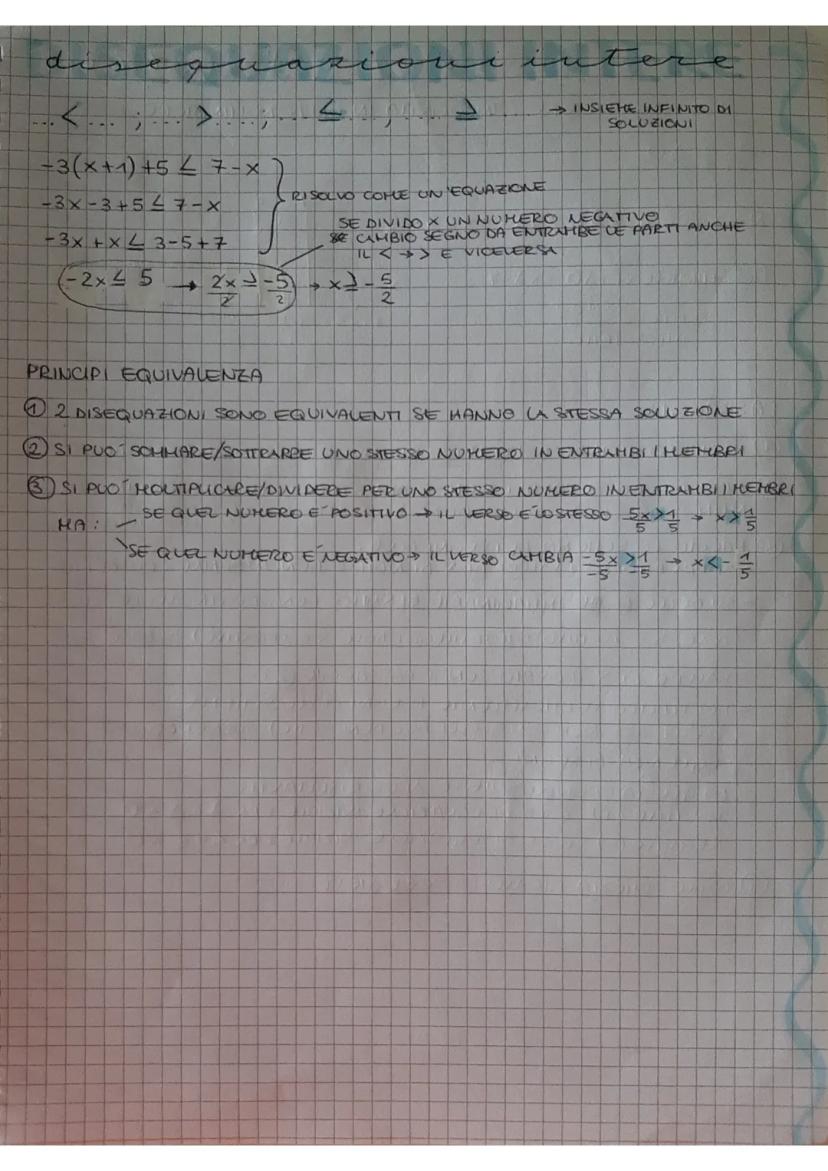 disequazioni intere
...<...;...>....;...≤...;...≥... → INSIEME INFINITO DI
SOLUZIONI
-3(x+1)+5 ≤ 7-x
-3x-3+5 ≤ 7-x
-3x+x ≤ 3-5+7
RISOLVO COME UN'EQUAZIONE
SE DIVIDO X UN NUMERO NEGATIVO
SE CAMBIO SEGNO DA ENTRAMBE LE PARTI ANCHE
IL < → > E VICEVERSA
-2x ≤ 5 → 2x/2 ≥ -5/2 → x ≥ -5/2
PRINCIPI EQUIVALENZA
① 2 DISEQUAZIONI SONO EQUIVALENTI SE HANNO LA STESSA SOLUZIONE
② SI PUO' SOMMARE/SOTTRARRE UNO STESSO NUMERO IN ENTRAMBI I MEMBRI
③ SI PUO' MOLTIPLICARE/DIVIDERE PER UNO STESSO NUMERO IN ENTRAMBI I MEMBRI
MA: SE QUEL NUMERO E' POSITIVO → IL VERSO E' LO STESSO 5x/5 > 1/5 → x > 1/5
SE QUEL NUMERO E' NEGATIVO → IL VERSO CAMBIA -5x/-5 > 1/-5 → x < -1/5